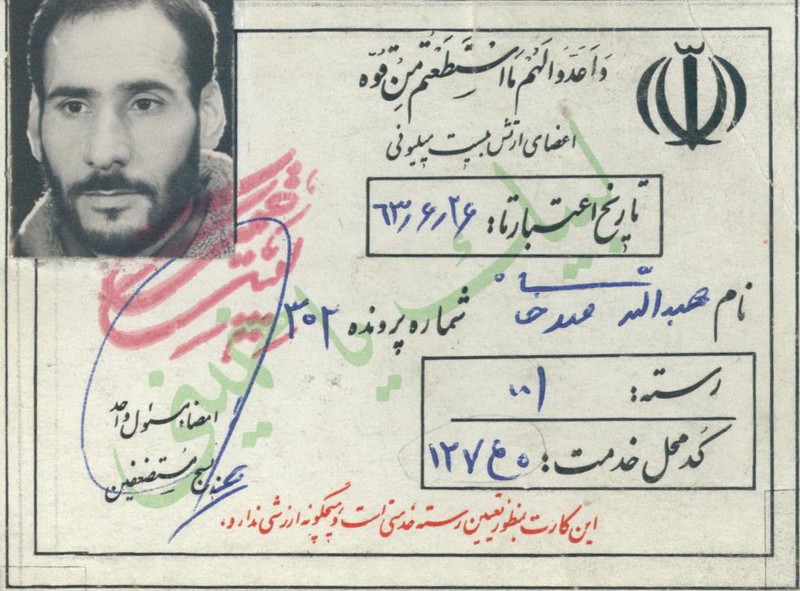 وَاَعِدُّوا لَهُمْ مَا اسْتَطَعْتُمْ مِنْ قُوَّه
اعضای ارتش بیست میلیونی
تاریخ اعتبار تا: ۶۳/۶/۲۶
نام عبدالله
شماره پرونده ۳۰۲
رسته:
کُد محل خدمت:
امضاء مسئول واحد
بسیج مستضعفین
لبیک یا خمینی
این کارت بمنظور تعیین رسته خدمتی است و هیچگونه ارزشی ندارد،